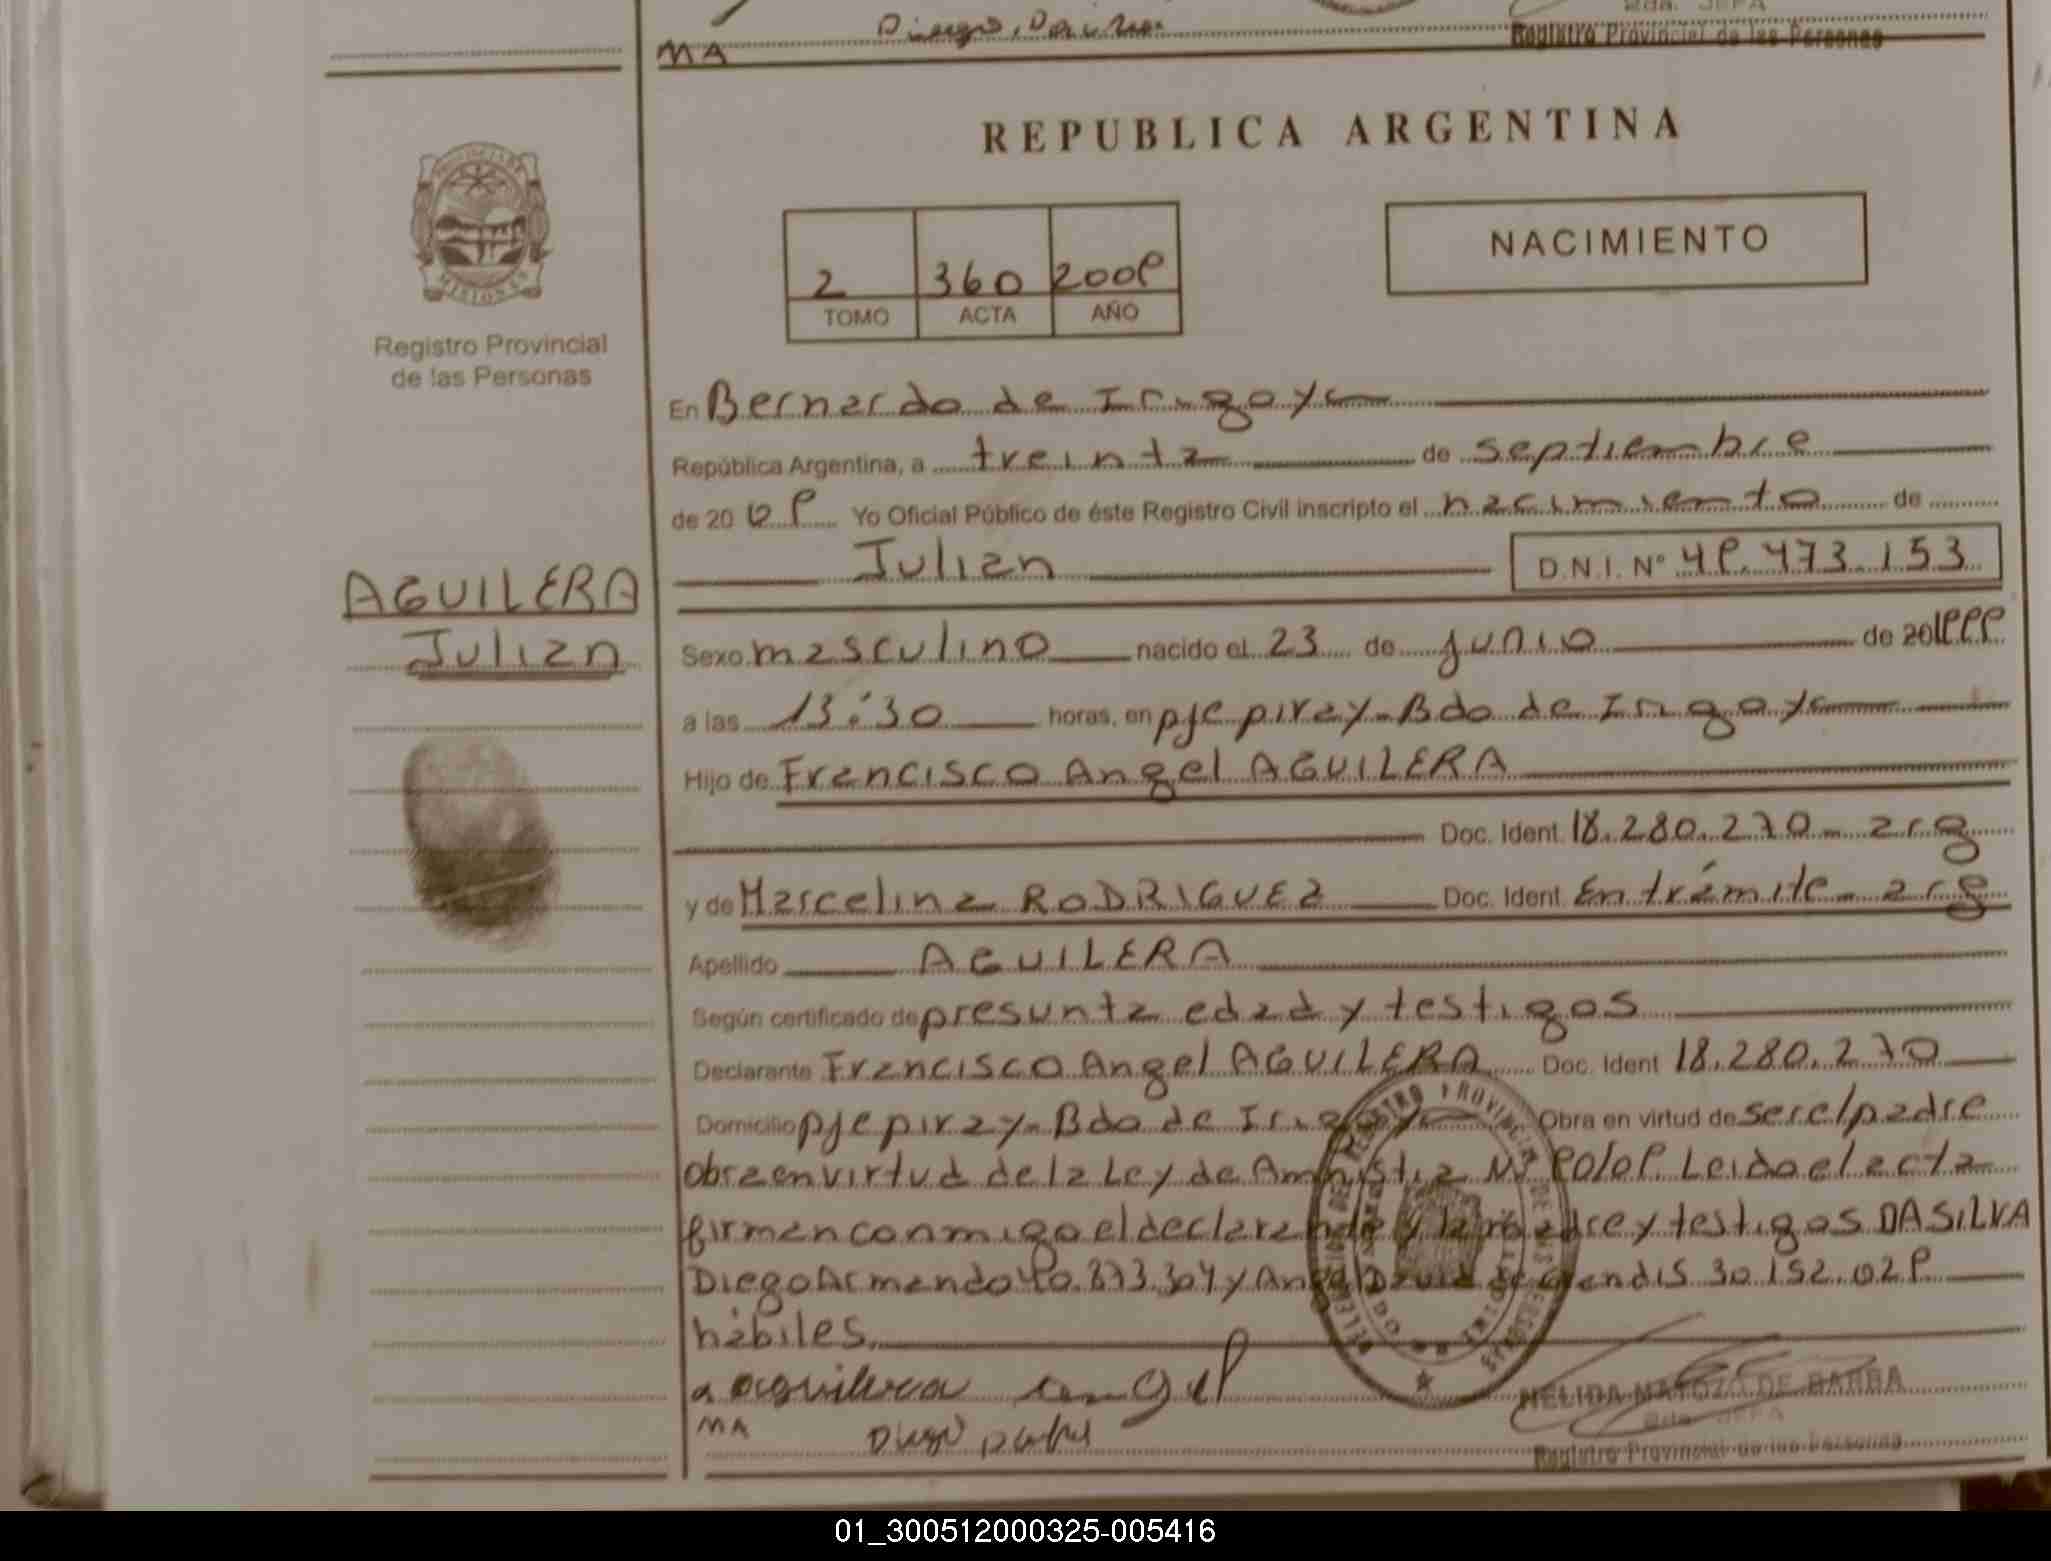 MA
Registro Provincial de las Personas
REPUBLICA ARGENTINA
MISIONES
Registro Provincial
de las Personas
2 360 2009
TOMO ACTA AÑO
NACIMIENTO
En Bernardo de Irigoyen
República Argentina, a treinta de septiembre
de 20 09 Yo Oficial Público de éste Registro Civil inscripto el nacimiento de
Julian D.N.I. Nº 49.473.153
AGUILERA
Julian
Sexo masculino nacido el 23 de junio de
a las 13:30 horas, en pje piray - Bdo de Irigoyen
Hijo de Francisco Angel AGUILERA
Doc. Ident. 18.280.270 - arg
y de Marcelina RODRIGUEZ Doc. Ident. En trámite - arg
Apellido AGUILERA
Según certificado de presunta edad y testigos
Declarante Francisco Angel AGUILERA Doc. Ident 18.280.270
Domicilio pje piray - Bdo de Irigoyen Obra en virtud de ser el padre
Obra en virtud de la Ley de Amnistia Nº Leido el acta
firman conmigo el declarante y la madre y testigos DA SILVA
Diego Armando 40.873.304 y David de 30.152.029
hábiles.
aguilera angel
MA
NELIDA MATOZO DE BARBA
2da. JEFA
Registro Provincial de las Personas
01_300512000325-005416